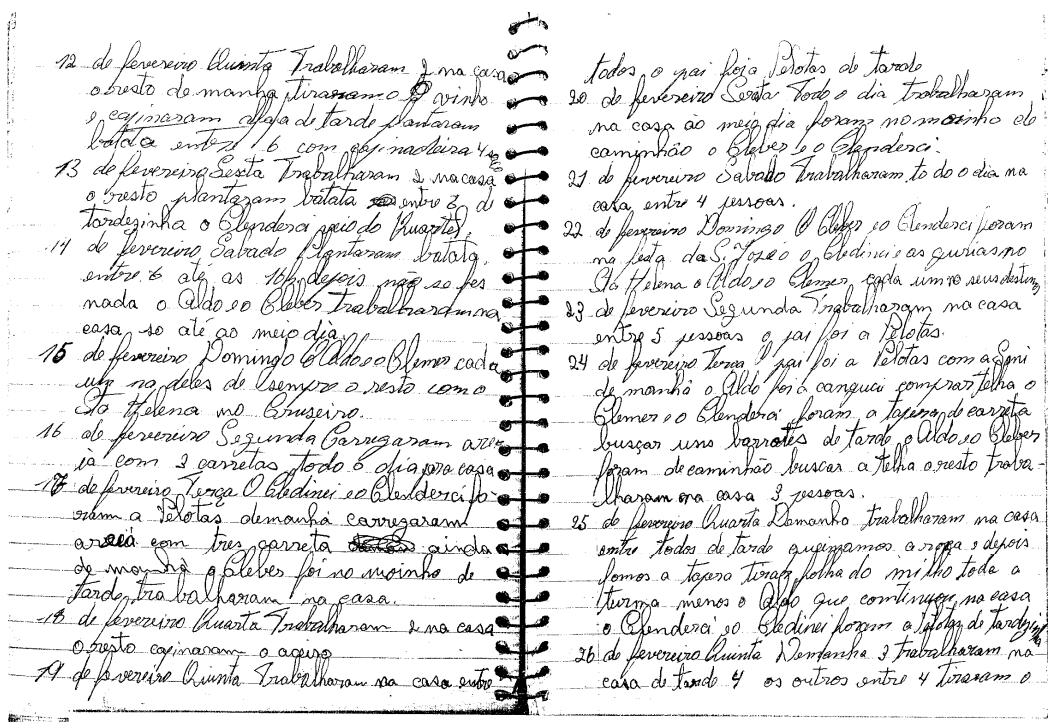 12 de fevereiro Quinta Trabalharam 2 na casa
o resto de manha tiraram o vinho
e capinaram de tarde plantaram
batata entre 6 com
13 de fevereiro Sexta Trabalharam 2 na casa
o resto plantaram batata entre 3 de
tardezinha o Clenderci veio do Quartel.
14 de fevereiro Sabado Plantaram batata,
entre 6 até as 10h depois não se fes
nada o Aldo e o Cleber trabalharam na
casa so até ao meio dia
15 de fevereiro Domingo O Aldo e o Clemer cada
um na deles de sempre o resto como
Sta Helena no Cruseiro.
16 de fevereiro Segunda Carregaram are
ia com 3 carretas todo o dia pra casa
17 de fevereiro Terça O Cledinei e o Clenderci fo-
ram a Pelotas demanhã carregaram
areia com tres carreta ainda
de manhã o Cleber foi no moinho de
tarde trabalharam na casa.
18 de fevereiro Quarta Trabalharam 2 na casa
o resto capinaram o aceiro
19 de fevereiro Quinta Trabalharam na casa entre
todos o pai foi a Pelotas de tarde
20 de fevereiro Sexta Todo o dia trabalharam
na casa ao meio dia foram no moinho de
caminhão o Cleber e o Clenderci.
21 de fevereiro Sabado Trabalharam todo o dia na
casa entre 4 pessoas.
22 de fevereiro Domingo O Cleber e o Clenderci foram
na festa da S. José o Cledinei e as gurias no
Sta Helena o Aldo e o Clemer cada um no seus destino
23 de fevereiro Segunda Trabalharam na casa
entre 5 pessoas o pai foi a Pelotas.
24 de fevereiro Terça o pai foi a Pelotas com a
de manhã o Aldo foi a canguci comprar telha o
Clemer e o Clenderci foram a tapera de carreta
busçar uns barrotes de tarde o Aldo e o Cleber
foram de caminhão buscar a telha o resto traba-
lharam na casa 3 pessoas.
25 de fevereiro Quarta Demanhã trabalharam na casa
entre todos de tarde queimamos a roça e depois
fomos a tapera tirar folha do milho toda a
turma menos o Aldo que continuou na casa
o Clenderci e o Cledinei foram a Pelotas de tardezinha
26 de fevereiro Quinta Demanhã 3 trabalharam na
casa de tarde 4 os outros entre 4 tiraram o